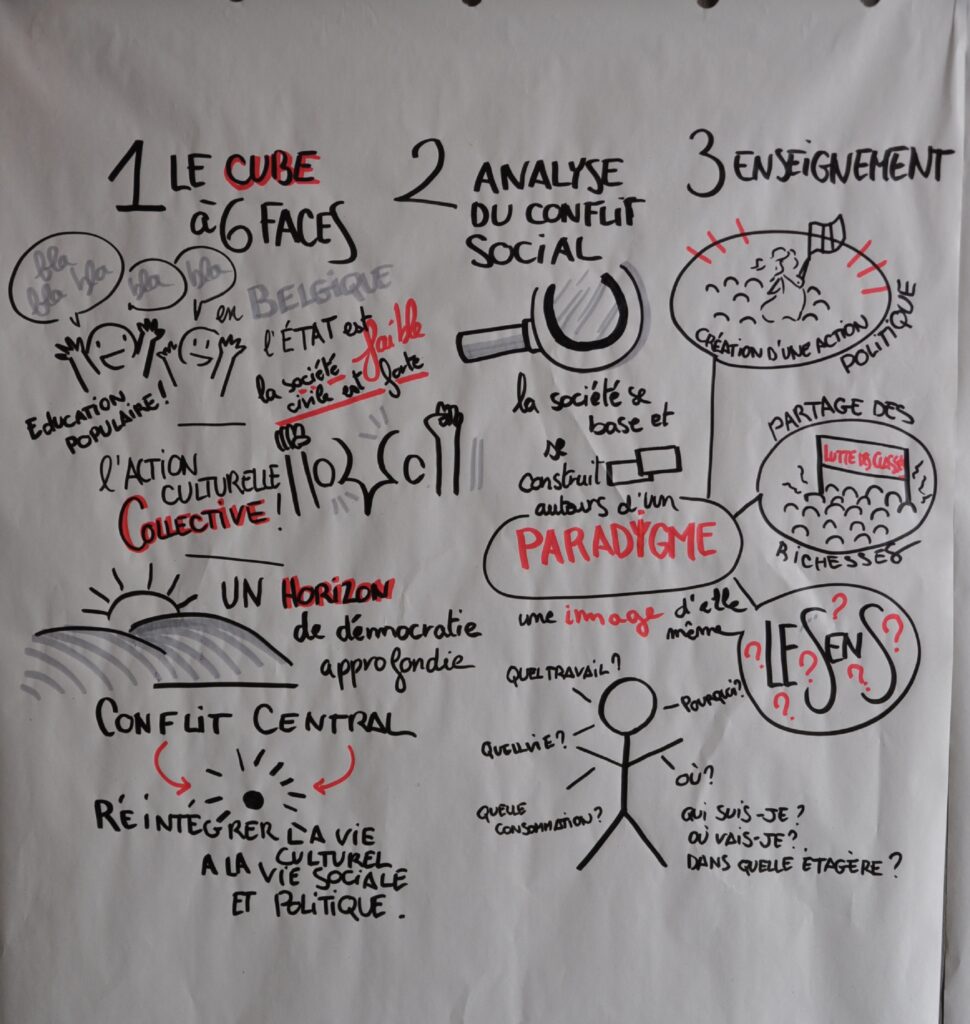 1 LE CUBE
à 6 FACES
bla
bla
bla
bla
bla
en BELGIQUE
l'ÉTAT est faible
la société
civile est forte
EDUCATION
POPULAIRE !
l'ACTION
CULTURELLE
COLLECTIVE !
UN HORIZON
de démocratie
approfondie
CONFLIT CENTRAL
RÉINTÉGRER LA VIE
CULTUREL
A LA VIE SOCIALE
ET POLITIQUE.
2 ANALYSE
DU CONFLIT
SOCIAL
la société se
base et
se
construit
autours d'un
PARADYGME
une image d'elle
même
QUEL TRAVAIL ?
POURQUOI ?
QUELLE VIE ?
OÙ ?
QUELLE
CONSOMMATION ?
QUI SUIS-JE ?
OÙ VAIS-JE ?
DANS QUELLE ÉTAGÈRE ?
3 ENSEIGNEMENT
CRÉATION D'UNE ACTION
POLITIQUE
PARTAGE DES
LUTTE DES CLASSES
RICHESSES
LE SENS
? ? ? ? ? ?